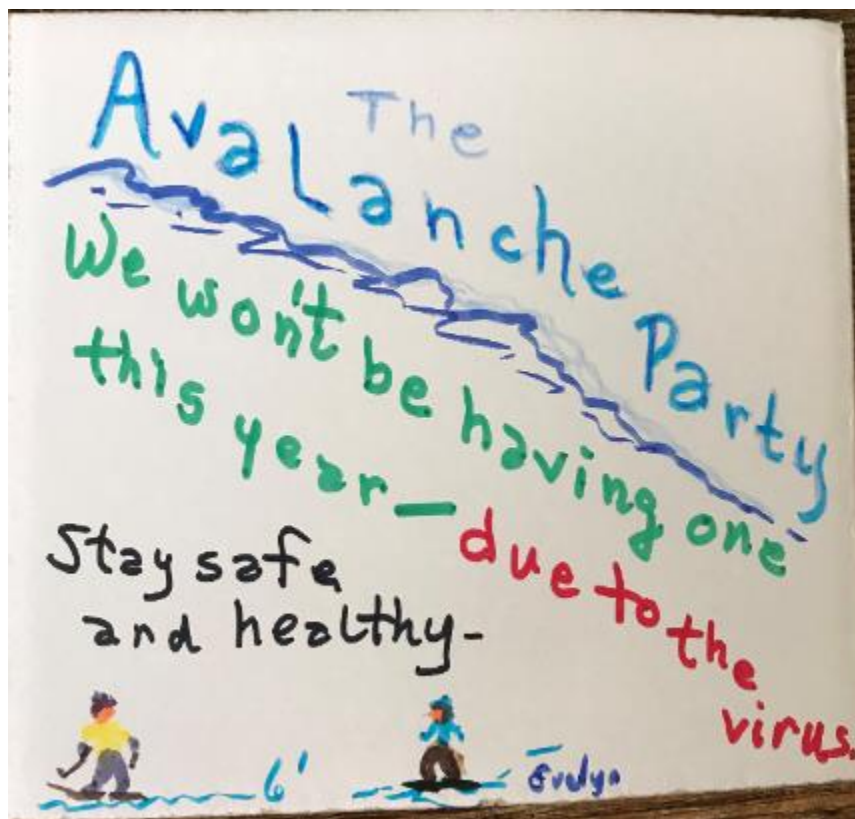 The
Avalanche Party
We won't be having one
this year— due to the
virus.
Stay safe
and healthy-
6'
Evelyn